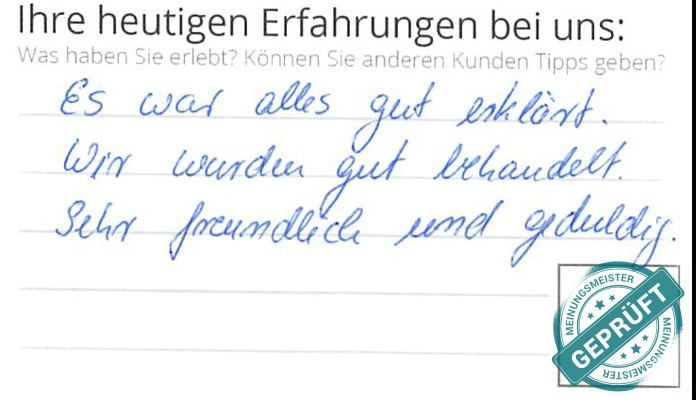 Ihre heutigen Erfahrungen bei uns:
Was haben Sie erlebt? Können Sie anderen Kunden Tipps geben?
Es war alles gut erklärt.
Wir wurden gut behandelt.
Sehr freundlich und geduldig.
MEINUNGSMEISTER
GEPRÜFT
MEINUNGSMEISTER